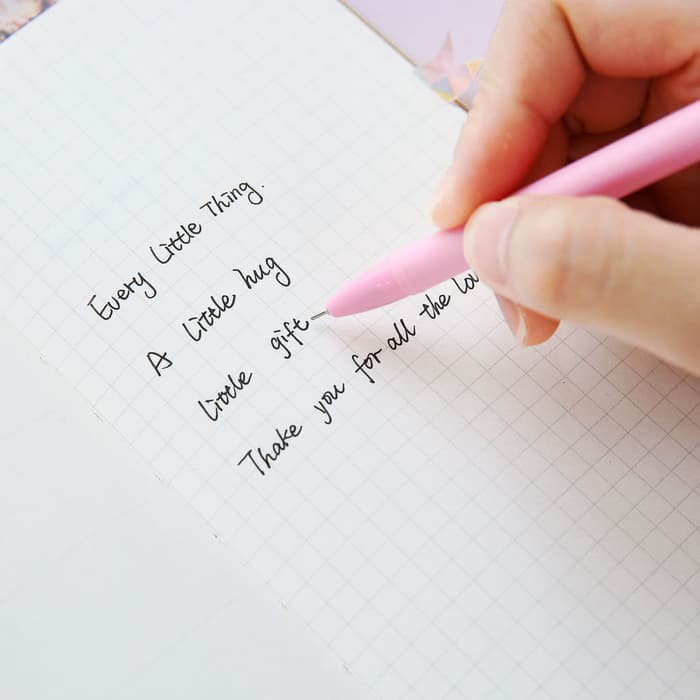 Every Little Thing.
A little hug
little gift
Thake you for all the